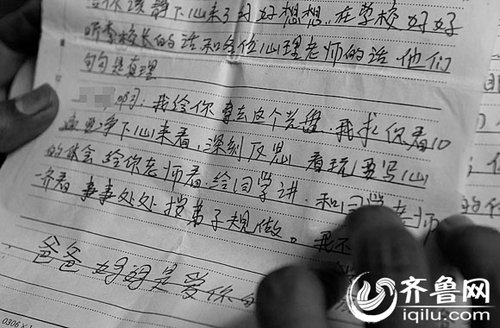 你应该静下心来了好好想想,在学校好好
听李校长的话和各位心理老师的话,他们
句句是真理
明:我给你寄去这个光盘.我求你看10
遍要净下心来看,深刻反思 看玩要写心
的体会 给你老师看.给同学讲.和同学老师
一齐看 事事处处 按弟子规做。我不
爸爸 妈妈是爱你的
0306×
齐鲁网
iqilu.com